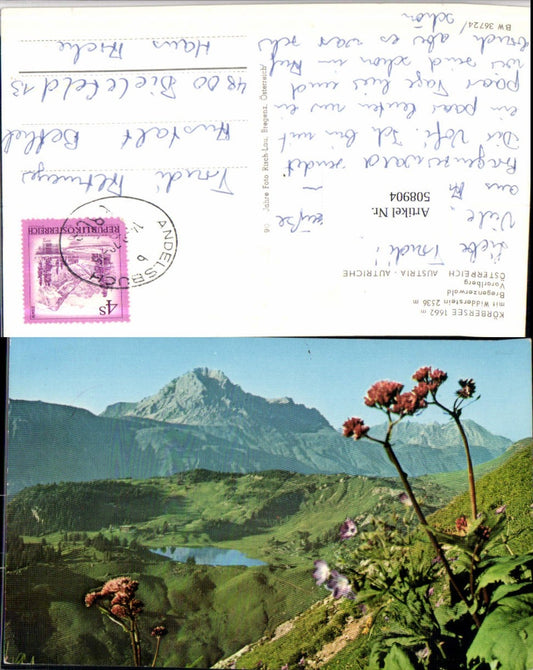 KÖRBERSEE 1662 m
mit Widderstein 2536 m
Bregenzerwald
Vorarlberg
ÖSTERREICH AUSTRIA - AUTRICHE
Liebe Trudi!
Viele Grüße
aus
Bregenzerwald sendet
Dir Vofi. Ich bin mit
ein paar Leuten um ein
paar Tage hier und
wir sind schon in
aber es war sehr
schön
BW 36724/
Jahre Foto Risch-Lau, Bregenz, Österreich/
Artikel Nr.
508904
REPUBLIK ÖSTERREICH
4S
ANDELSBUCH
Trudi
Anstalt Bethel
4800 Bielefeld 13
Haus